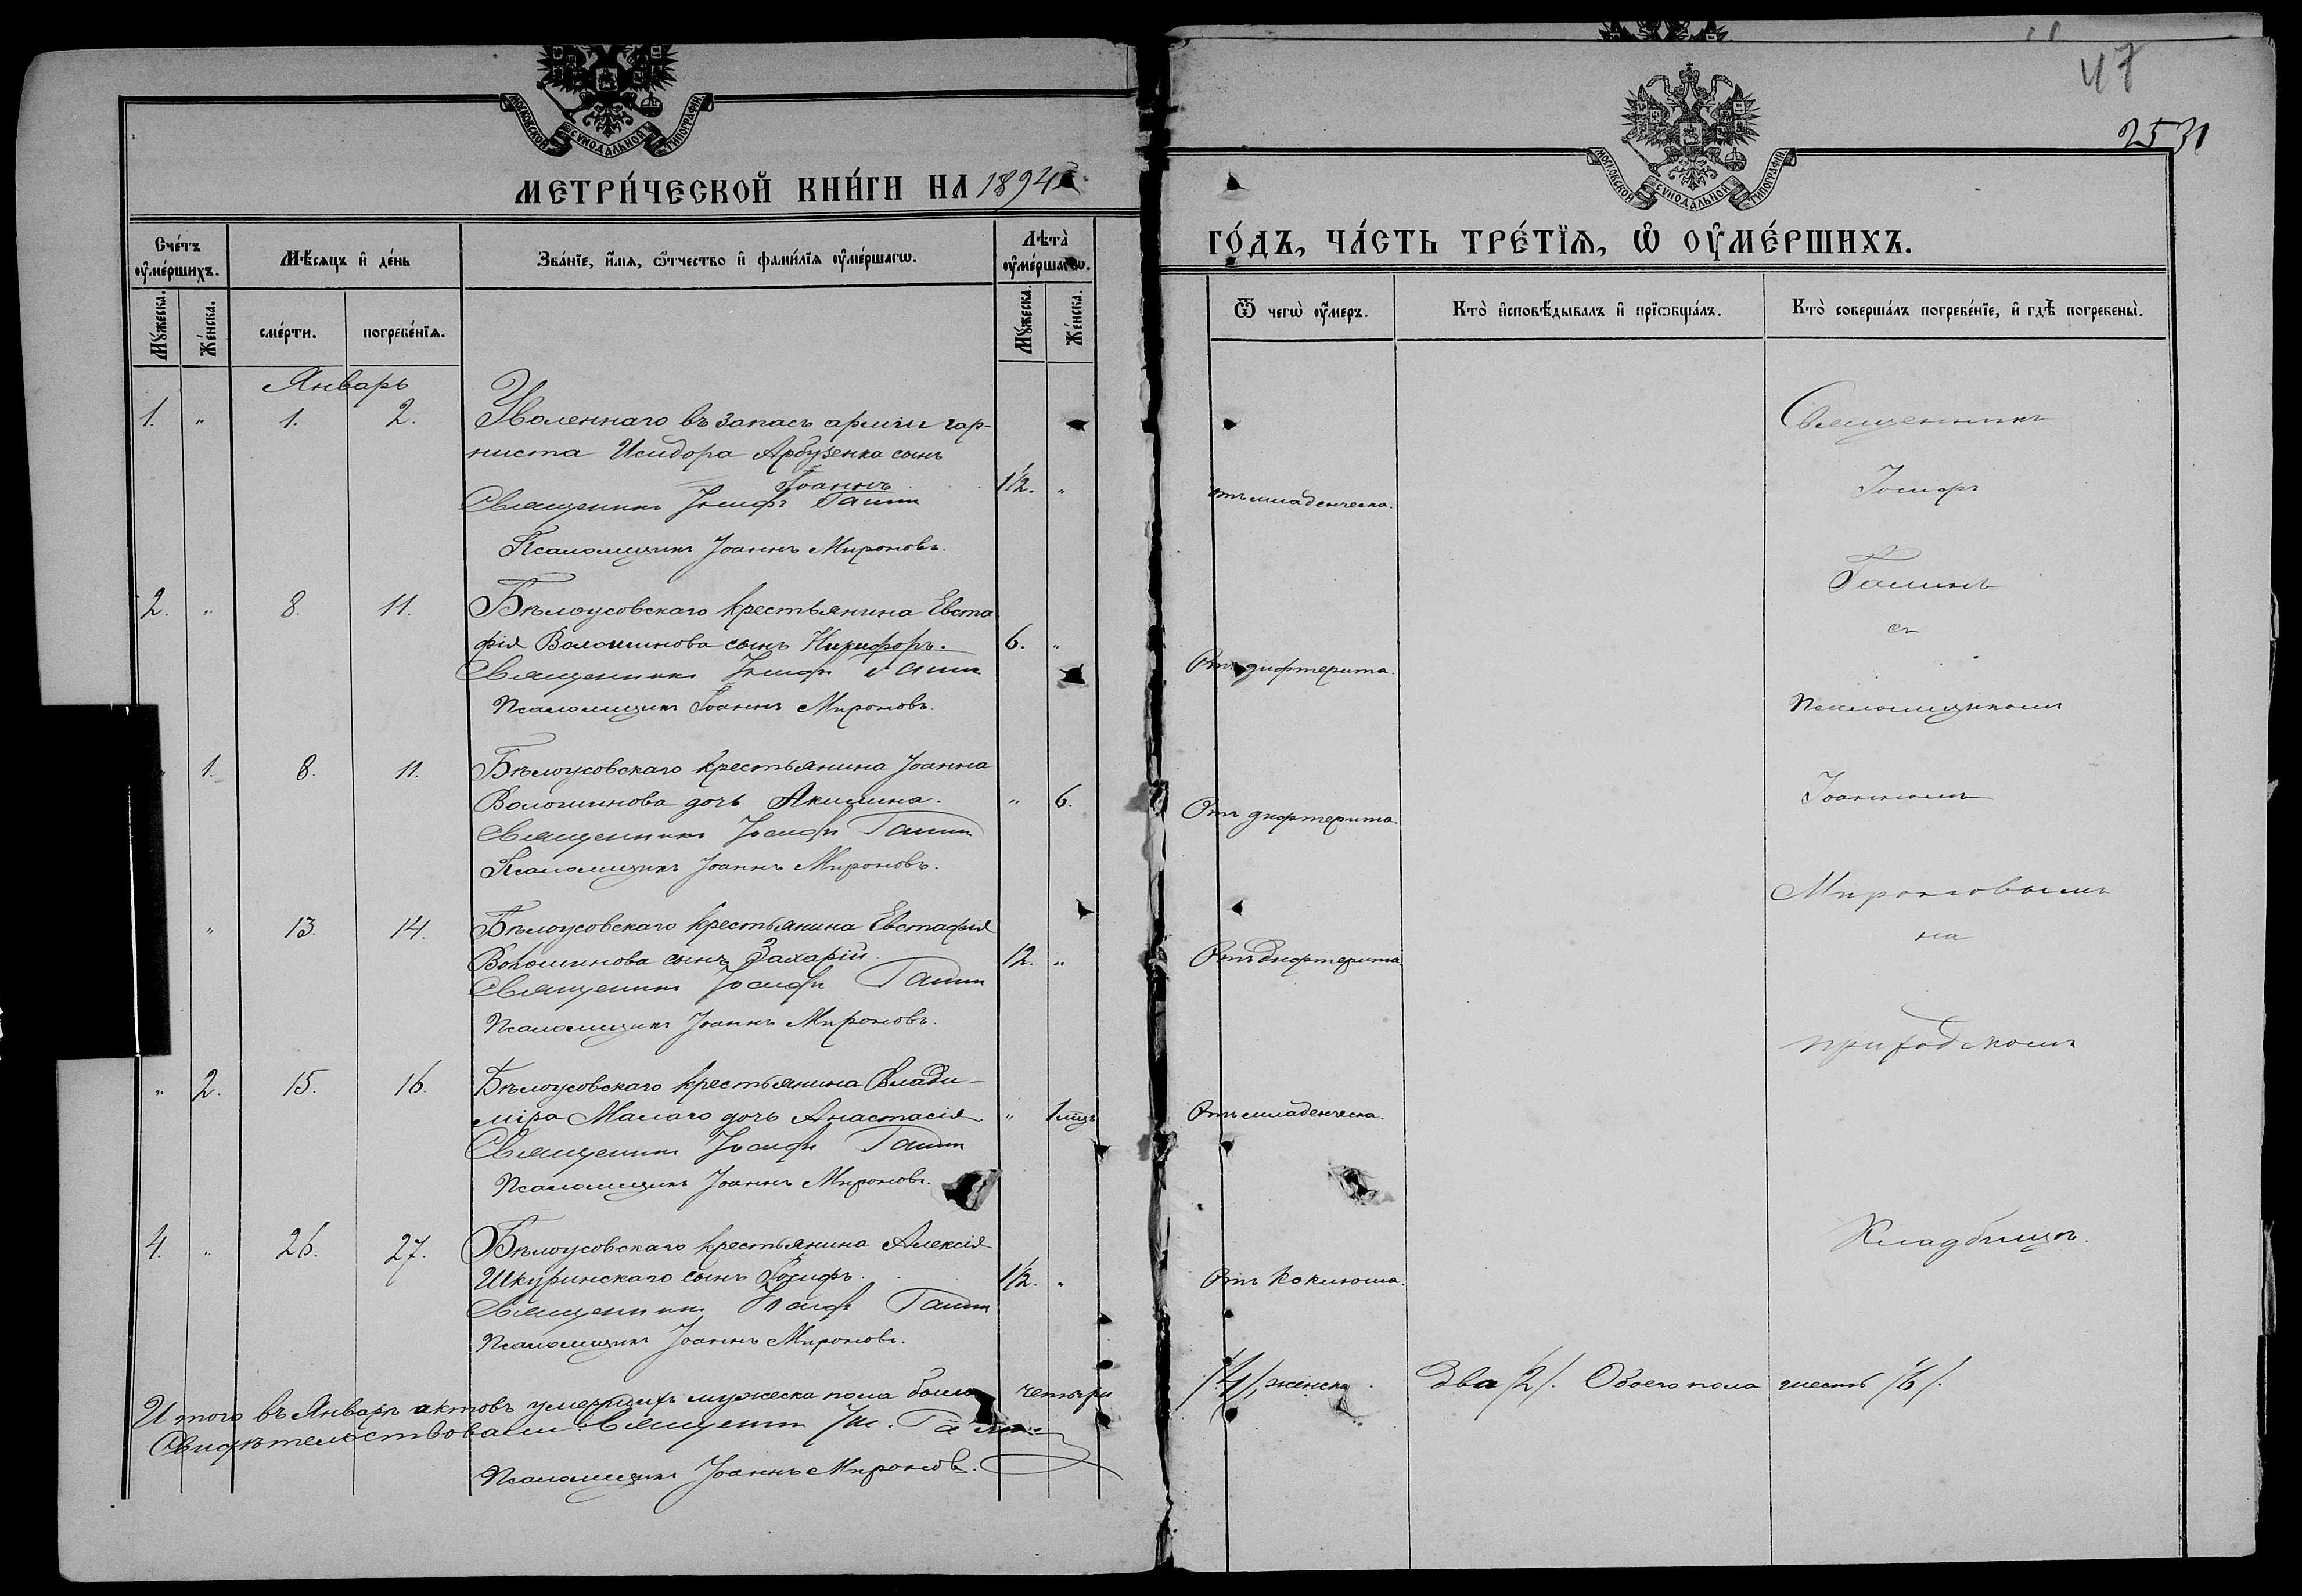 МОСКОВСКОЙ СѴНОДАЛЬНОЙ ТИПОГРАФІИ
МЕТРИ́ЧЕСКОЙ КНИ́ГИ НА 1894
Счетъ оумершихъ.
Мѣсяцъ и день
Званіе, имя, ѿтчество и фамилія оумершагѡ.
Лѣта оумершагѡ.
Мужеска.
Женска.
смерти.
погребенія.
Мужеска.
Женска.
Январь
1. " 1. 2. Уволеннаго въ запасъ арміи гор-
ниста Исидора Арбузенка сынъ
Іоаннъ 1½. "
Священникъ Іосифъ Гапин
Псаломщикъ Іоаннъ Мироновъ.
2. " 8. 11. Бѣлоусовскаго крестьянина Евста
фія Волошинова сынъ Никифоръ. 6. "
Священникъ Іосифъ
Псаломщикъ Іоаннъ Мироновъ.
" 1. 8. 11. Бѣлоусовскаго крестьянина Іоанна
Волошинова дочь Акилина. " 6.
Священникъ Іосифъ
Псаломщикъ Іоаннъ Мироновъ.
" 13. 14. Бѣлоусовскаго крестьянина Евстафія
Волошинова сынъ Захарій. 12. "
Священникъ Іосифъ
Псаломщикъ Іоаннъ Мироновъ.
" 2. 15. 16. Бѣлоусовскаго крестьянина Влади-
міра Малаго дочь Анастасія " 1 мцъ
Священникъ Іосифъ
Псаломщикъ Іоаннъ Мироновъ.
4. " 26. 27. Бѣлоусовскаго крестьянина Алексія
Шкуринскаго сынъ Іосифъ. 1½. "
Священникъ Іосифъ
Псаломщикъ Іоаннъ Мироновъ.
Итого въ Январѣ актовъ умершихъ мужеска пола было четыри
Свидѣтельствовали: Священникъ Іос.
Псаломщикъ Іоаннъ Мироновъ.
47
2531
МОСКОВСКОЙ СѴНОДАЛЬНОЙ ТИПОГРАФІИ
ГО́ДЪ, ЧА́СТЬ ТРЕ́ТІЯ, Ѡ ОУМЕ́РШИХЪ.
Ѿ чегѡ оумеръ.
Кто исповѣдывалъ и пріѡбщалъ.
Кто совершалъ погребеніе, и гдѣ погребены.
Священникъ
Іосифъ
отъ младенческа.
съ
Отъ дифтерита.
Псаломщикомъ
Іоанномъ
Отъ дифтерита.
Мироновымъ
на
Отъ дифтерита
приходскомъ
Отъ младенческа.
Кладбищѣ.
Отъ коклюша.
/4/, женска два /2/. Обоего пола шесть /6/.